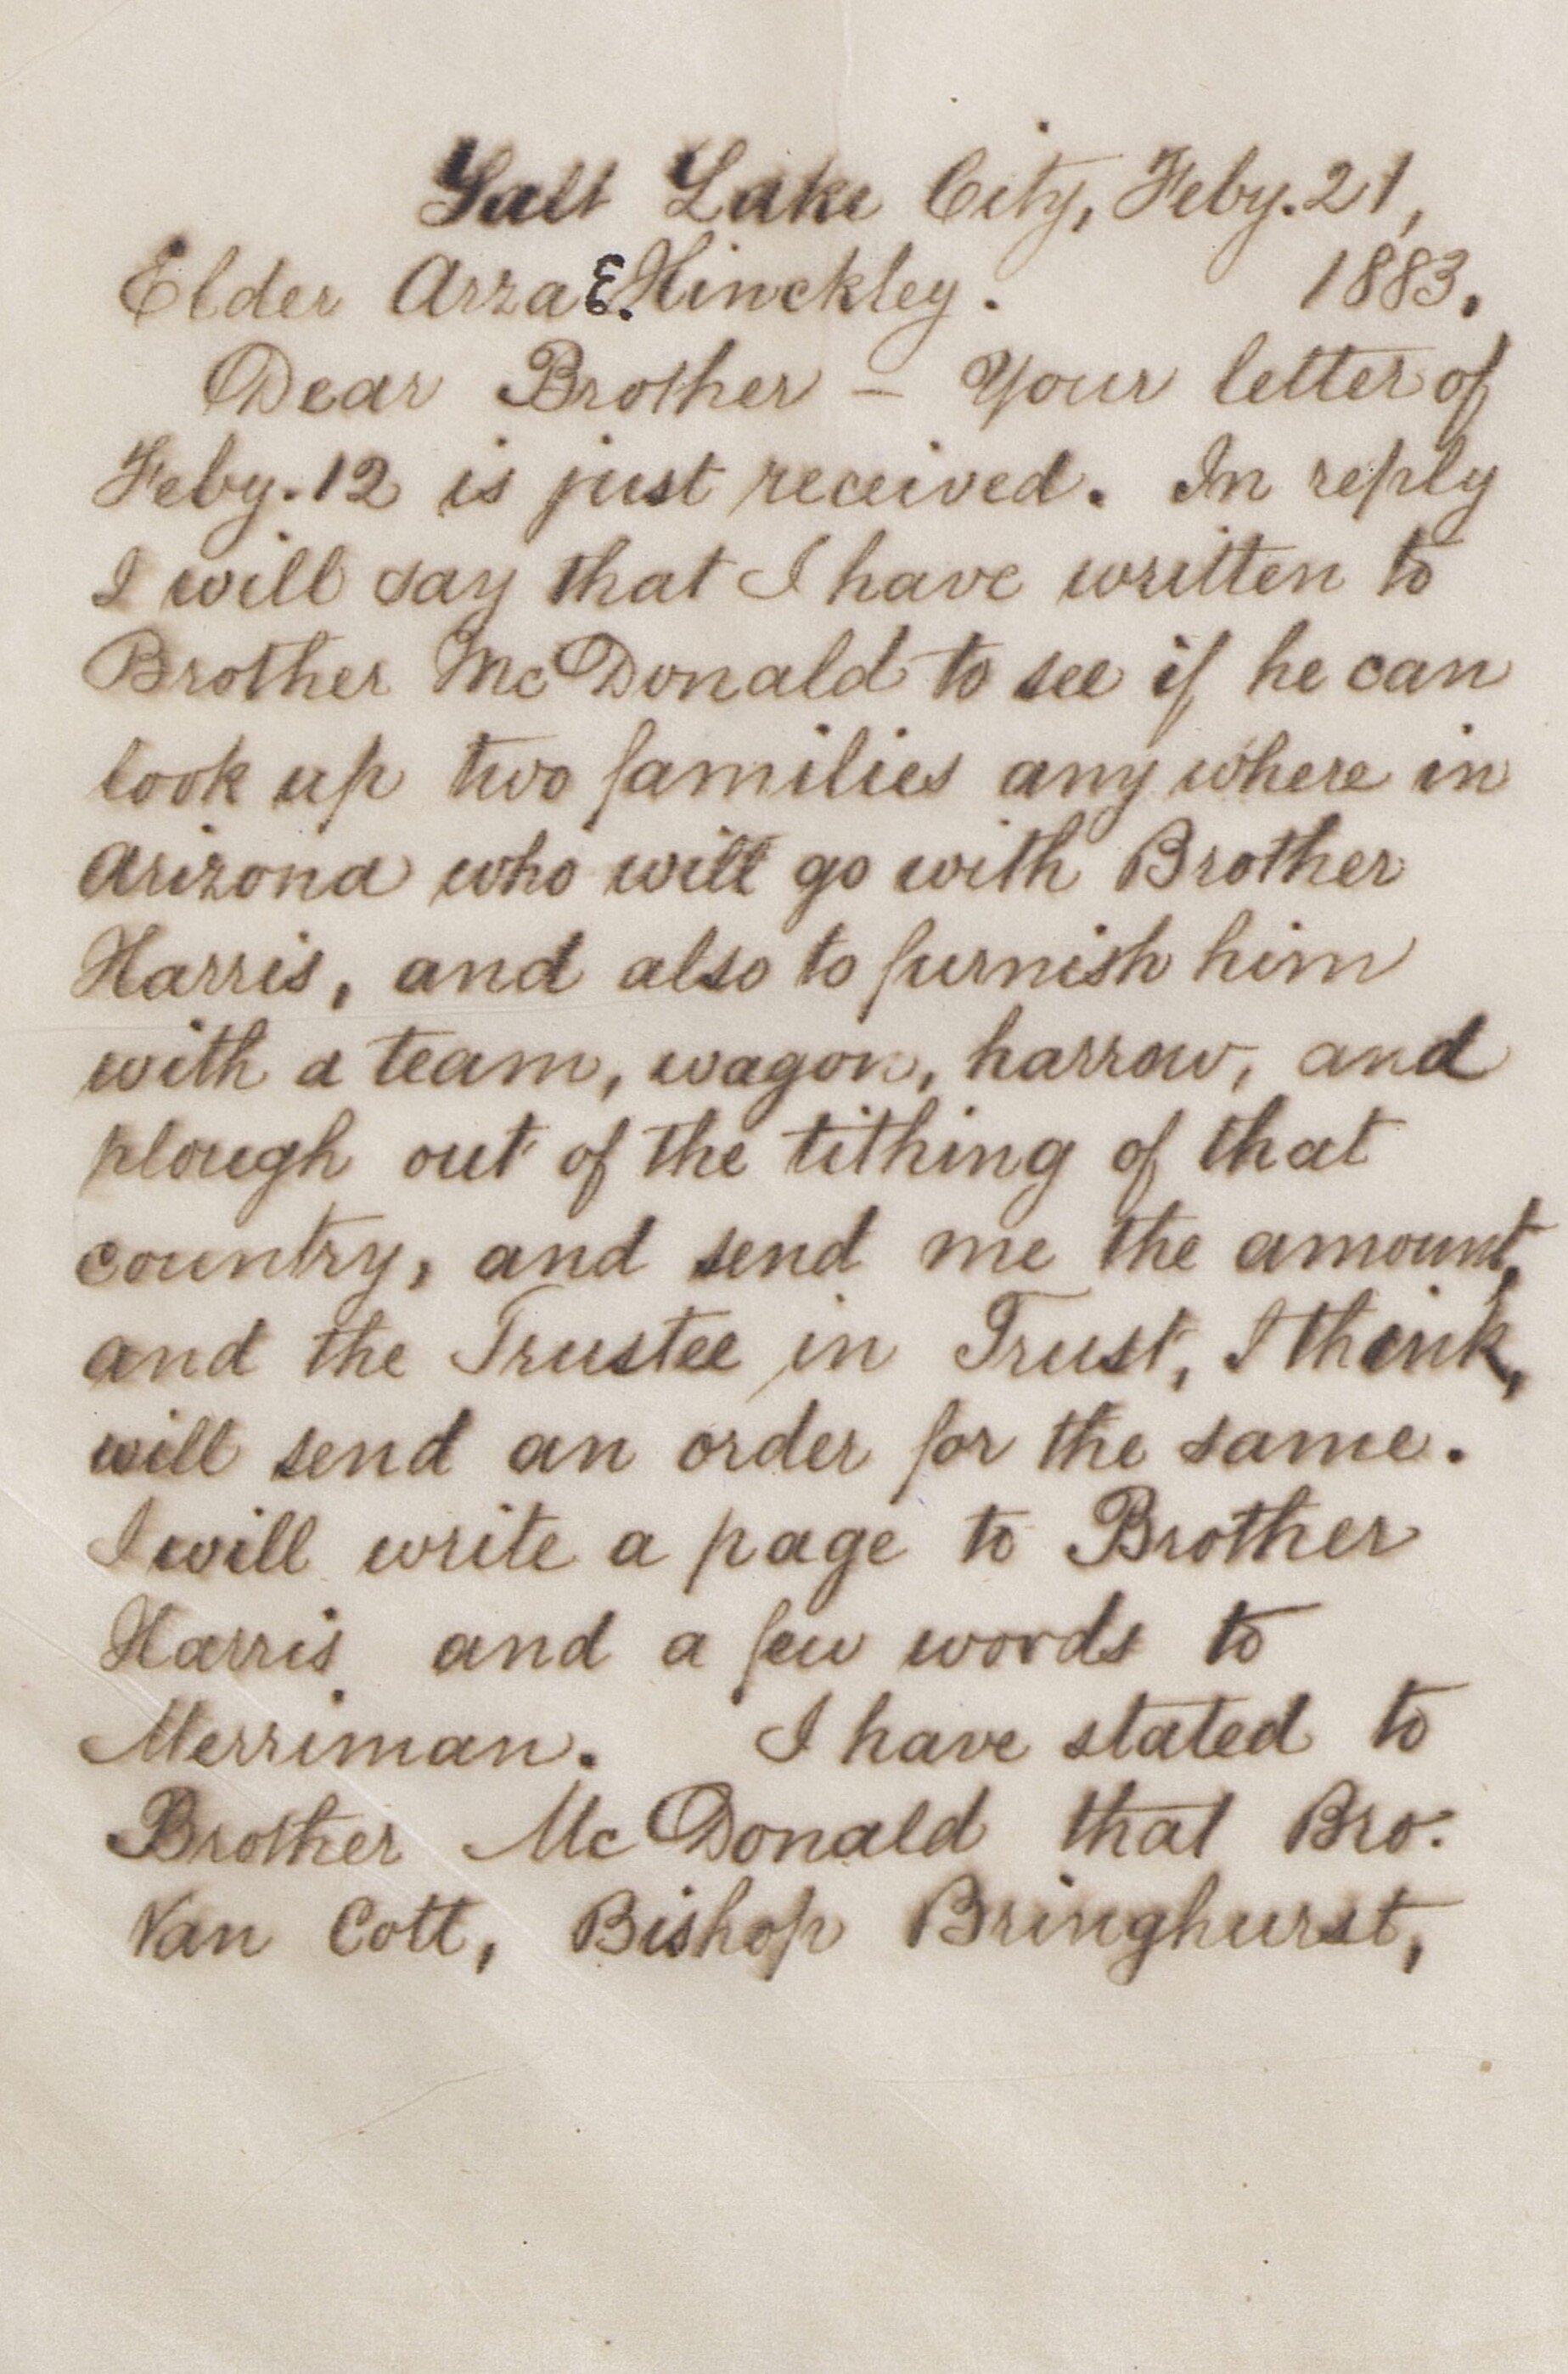 Salt Lake City, Feby. 21,
Elder Arza E. Hinckley. 1883.
Dear Brother – Your letter of
Feby. 12 is just received. In reply
I will say that I have written to
Brother McDonald to see if he can
look up two families any where in
Arizona who will go with Brother
Harris, and also to furnish him
with a team, wagon, harrow, and
plough out of the tithing of that
country, and send me the amount,
and the Trustee in Trust, I think,
will send an order for the same.
I will write a page to Brother
Harris and a few words to
Merriman. I have stated to
Brother McDonald that Bro.
Van Cott, Bishop Bringhurst,